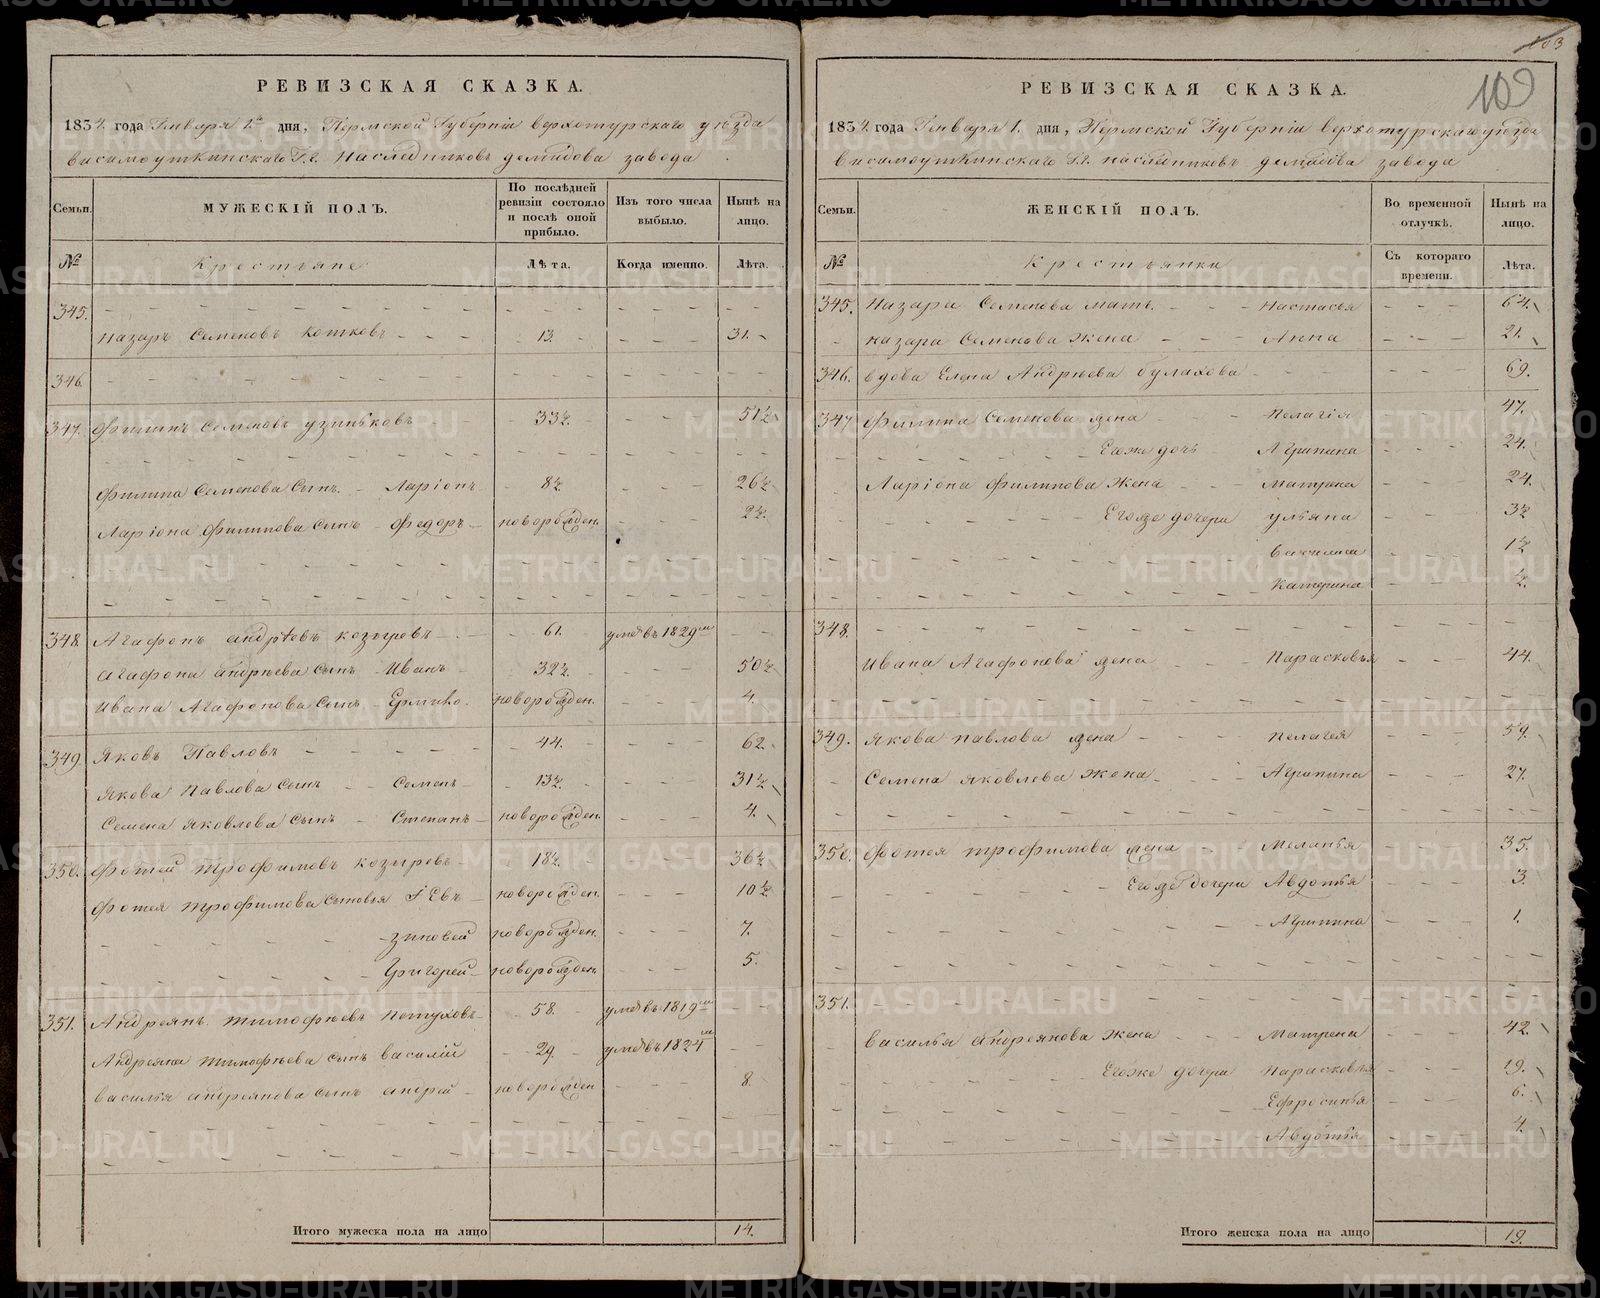 РЕВИЗСКАЯ СКАЗКА.
1834. года Генваря 1го дня, Пермской Губернiи верхотурскаго уѣзда
висимоуткинскаго Г.г. наследниковъ демидова завода
Семьи. МУЖЕСКIЙ ПОЛЪ. По послѣдней ревизiи состояло и послѣ оной прибыло. Изъ того числа выбыло. Нынѣ на лицо.
№ Крестьяне Лѣта. Когда именно. Лѣта.
345.
Назаръ Семеновъ Котковъ 13. 31.
346.
347. Филипъ Семеновъ узиньковъ 33½. 51½
Филипа Семенова Сынъ. Ларiонъ 8½. 26½
Ларiона Филипова сынъ Федоръ новорожден. 2½.
348. Агафонъ андрѣевъ козыревъ 61. умеѣ въ 1829м
Агафона андрѣева сынъ Иванъ 32½. 50½
Ивана Агафонова сынъ Ермило. новорожден. 4.
349. Яковъ Павловъ 44. 62.
Якова Павлова сынъ Семенъ 13½. 31½
Семена яковлева сынъ Степанъ новорожден. 4.
350. Фотей трофимовъ козыревъ 18½. 36½
Фотея трофимова сыновья Iевъ новорожден. 10½
зиновей новорожден. 7.
Григорей новорожден. 5.
351. Андреянъ тимофѣевъ Петуховъ 58. умеѣ въ 1819м
Андреяна тимофѣева сынъ василiй 29. умеѣ въ 1824м
василья андреянова сынъ андрей новорожден 8.
Итого мужеска пола на лицо 14.
103
109
РЕВИЗСКАЯ СКАЗКА.
1834. года Генваря 1. дня, Пермской Губернiи верхотурскаго уѣзда
висимоуткинскаго Г.г. наследниковъ демидова завода
Семьи. ЖЕНСКIЙ ПОЛЪ. Во временной отлучкѣ. Нынѣ на лицо.
№ Крестьянки Съ котораго времени. Лѣта.
345. Назара Семенова мать. Настасья 64.
назара Семенова жена Анна 21.
346. вдова Елена Андрѣева булахова 69.
347 Филипа Семенова жена Пелагiя 47.
Егоже дочь Агрипина 24.
Ларiона Филипова жена матрена 24.
Егоже дочери ульяна 3½
василиса 1½
Катерина ½.
348.
Ивана Агафонова жена Парасковья 44.
349. Якова павлова жена пелагея 59.
Семена яковлева жена Агрипина 27.
350. Фотея трофимова жена Меланья 35.
Егоже дочери Авдотья 3.
Агрипина 1.
351.
василья андреянова жена матрена 42.
Егоже дочери парасковья 19.
Ефросинья 6.
Авдотья 4.
Итого женска пола на лицо 19.
METRIKI.GASO-URAL.RU